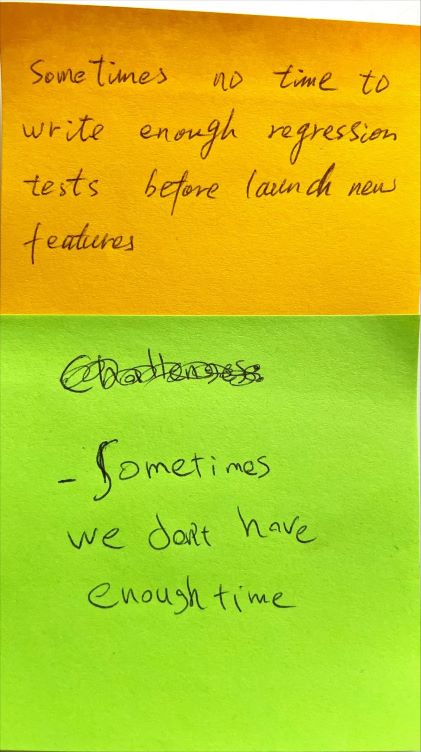 Sometimes no time to
write enough regression
tests before launch new
features
- Sometimes
we don't have
enough time